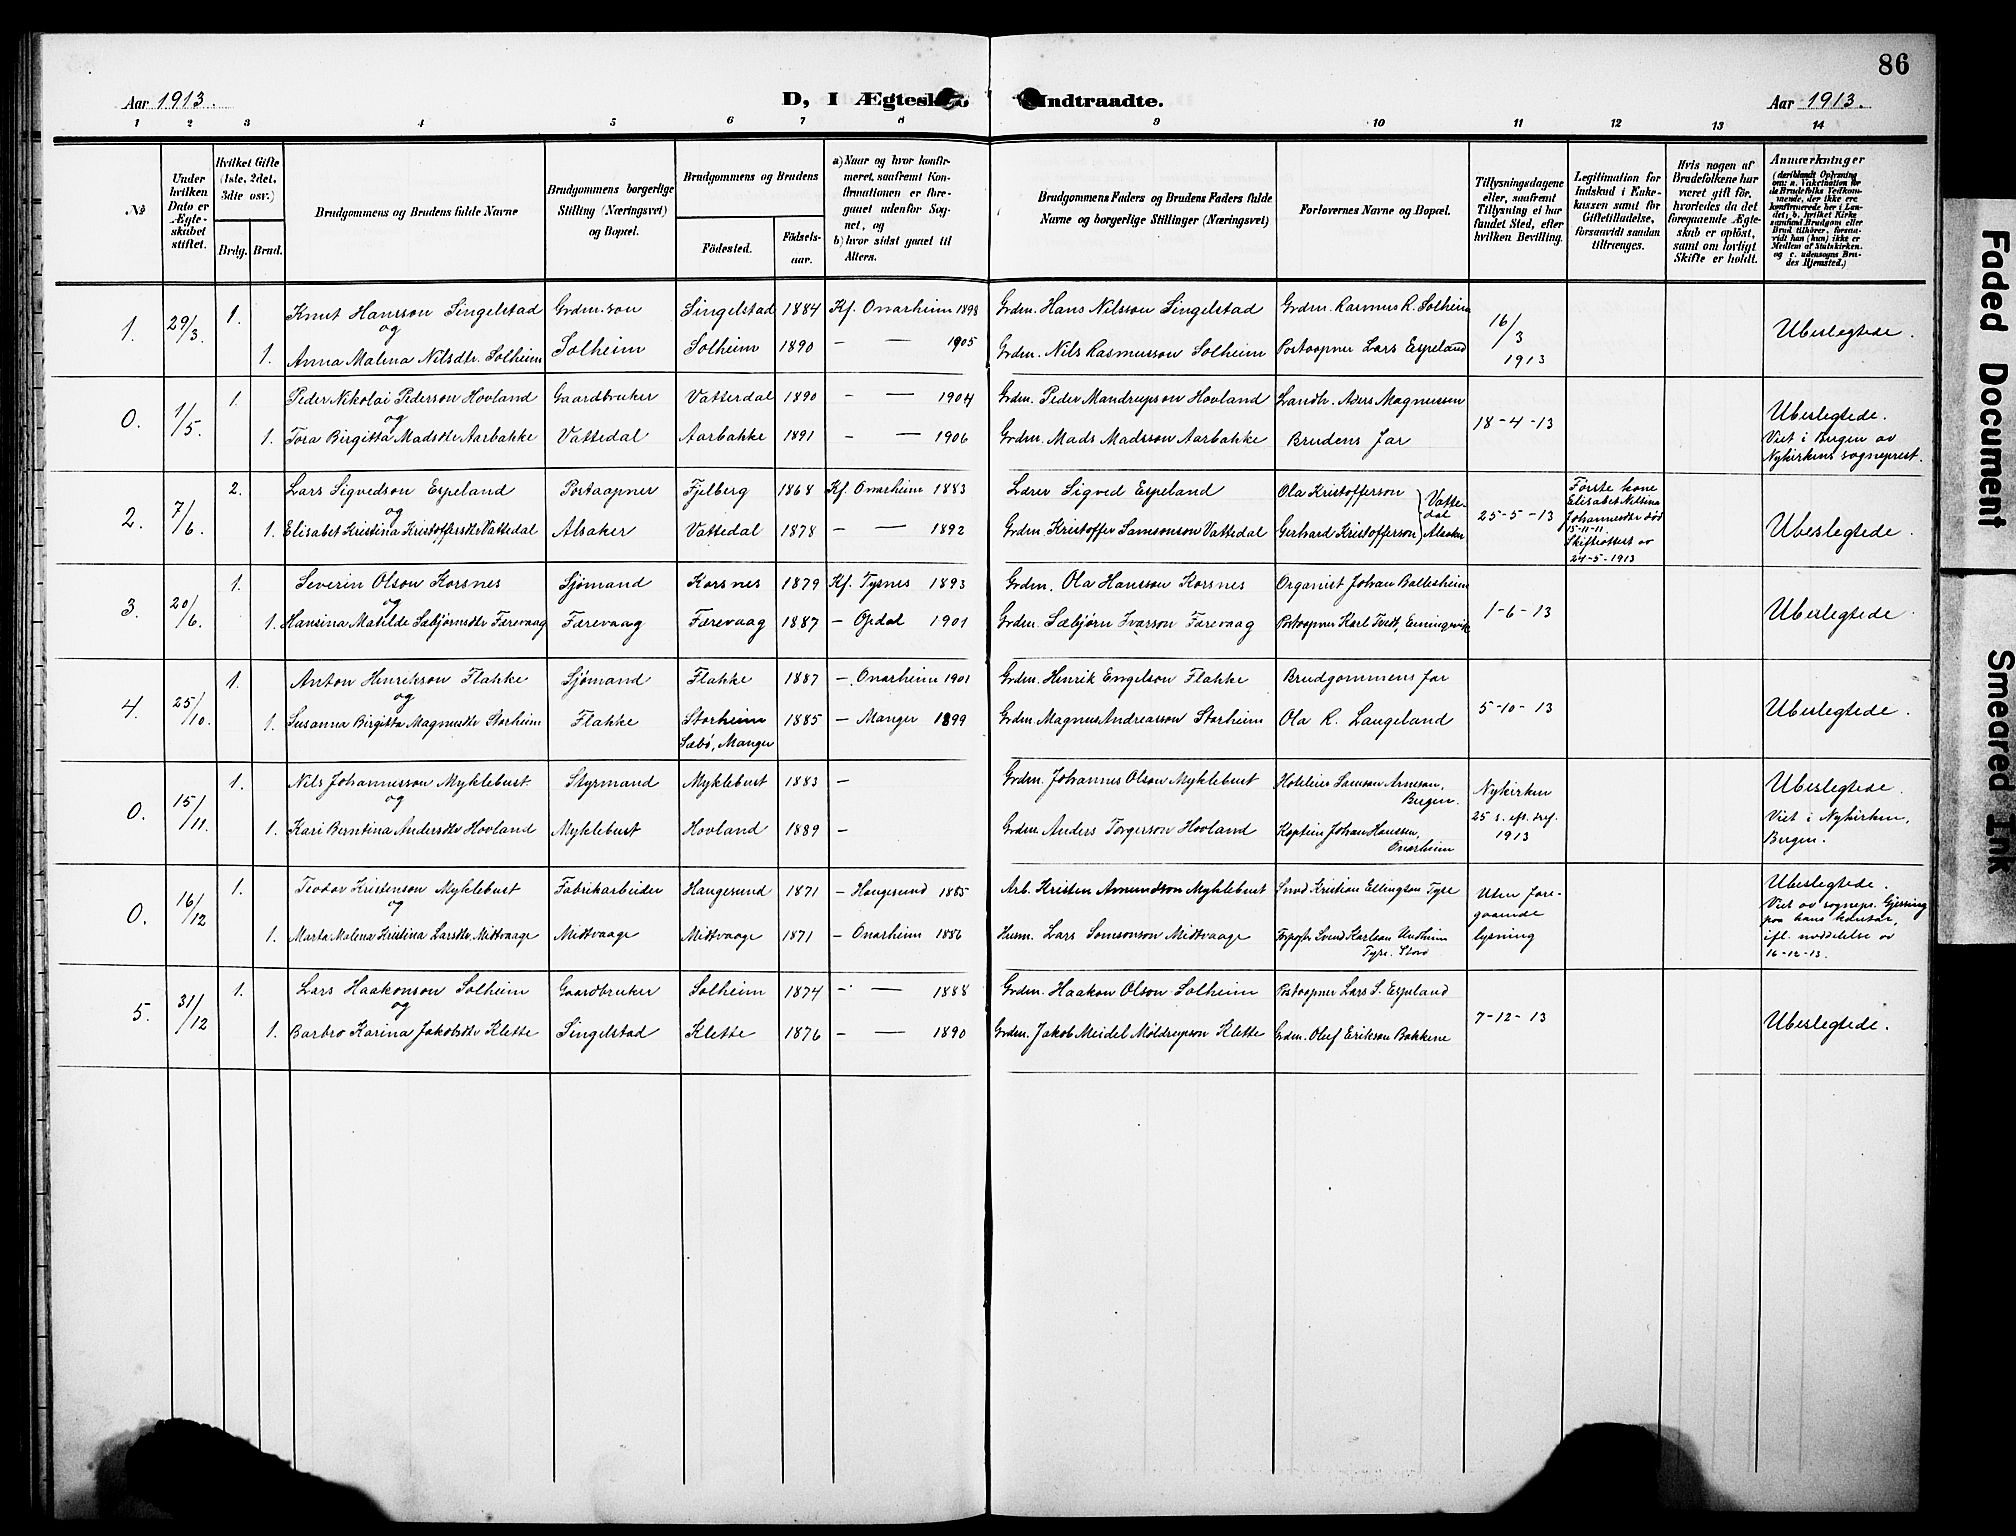 86
Aar 1913.
D, I Ægtesk Indtraadte.
Aar 1913.
1 2 3 4 5 6 7 8 9 10 11 12 13 14
№
Under hvilken Dato er Ægteskabet stiftet.
Hvilket Gifte (1ste, 2det, 3die osv.)
Brdg. Brud.
Brudgommens og Brudens fulde Navne
Brudgommens borgerlige Stilling (Næringsvei) og Bopæl.
Brudgommens og Brudens
Födested. Födselsaar.
a) Naar og hvor konfirmeret, saafremt Konfirmationen er foregaaet udenfor Sognet, og
b) hvor sidst gaaet til Alters.
Brudgommens Faders og Brudens Faders fulde Navne og borgerlige Stillinger (Næringsvei)
Forlovernes Navne og Bopæl.
Tillysningsdagene eller, saafremt Tillysning ei har fundet Sted, efter hvilken Bevilling.
Legitimation for Indskud i Enkekassen samt for Giftetilladelse, forsaavidt saadan tiltrænges.
Hvis nogen af Brudefolkene har været gift för, hvorledes da det foregaaende Ægteskab er oplöst, samt om lovligt Skifte er holdt.
Anmærkninger
(deriblandt Oplysning om: a. Vakcination for de Brudefolks Vedkommende, der ikke ere konfirmerede her i Landet; b. hvilket Kirkesamfund Brudgom eller Brud tilhörer, forsaavidt han (hun) ikke er Medlem af Statskirken. og c. udensogns Brudes Hjemsted.)
1. 29/3 1. Knut Hansson Singelstad Grdm.son Singelstad 1884 Kf. Onarheim 1898 Grdm. Hans Nilsson Singelstad Grdm. Rasmus R. Solheim 16/3 1913 Ubeslegtede.
og
1. Anna Malena Nilsdtr. Solheim Solheim Solheim 1890 – — 1905 Grdm. Nils Rasmusson Solheim Postaapner Lars Espeland
0. 1/5. 1. Peder Nikolai Pederson Hovland Gaardbruker Vattedal 1890 – — 1904 Grdm. Peder Mandrupson Hovland Landh. Magnussen 18-4-13 Ubeslegtede.
og
1. Tora Birgitta Madsdtr Aarbakke Vattedal Aarbakke 1891 – — 1906 Grdm. Mads Madsson Aarbakke Brudens far
Viet i Bergen av
Nykirkens sogneprest.
2. 7/6. 2. Lars Sigvedson Espeland Postaapner Fjelberg 1868 Kf. Onarheim 1883 Lærer Sigved Espeland Ola Kristofferson Vattedal 25-5-13 Første kone Elisabet Nilsina Johannesdtr død 15-11-11. Skifteattest av 24-5-1913 Ubeslegtede.
og
1. Elisabet Kristina Kristoffersdtr Vattedal Alsaker Vattedal 1878 – — 1892 Grdm. Kristoffer Samsonson Vattedal Gerhard Kristofferson Alsaker
3. 20/6. 1. Severin Olson Korsnes Sjømand Korsnes 1879 Kf. Tysnes 1893 Grdm. Ola Hansson Korsnes Organist Johan Ballesheim 1-6-13 Ubeslegtede.
og
1. Hansina Matilde Sæbjørnsdtr Færevaag Færevaag Færevaag 1887 – Opdal 1901 Grdm. Sæbjørn Ivarson Færevaag Postaapner Karl Tvedt, Eningevik
4. 25/10. 1. Anton Henrikson Flakke Sjømand Flakke 1887 –. Onarheim 1901 Grdm. Henrik Engelson Flakke Brudgommens far 5-10-13 Ubeslegtede.
og
1. Susanna Birgitta Magnusdtr Storheim Flakke Storheim 1885 – Manger 1899 Grdm. Magnus Andreasson Storheim Ola R. Langeland
Sæbø, Manger
0. 15/11. 1. Nils Johannesson Myklebust. Styrmand Myklebust 1883 – Grdm. Johannes Olson Myklebust Hoteleier Samson Arneson, Bergen. Nykirken 25 s. eft. tref. 1913 Ubeslegtede.
og
1. Kari Berntina Andersdtr Hovland Myklebust Hovland 1889 – Grdm. Anders Torgerson Hovland Kaptein Johan Hanssen, Onarheim
Viet i Nykirken, Bergen.
0. 16/12 1. Teodor Kristenson Myklebust Fabrikarbeider Haugesund 1871 – Haugesund 1885 Arb. Kristen Amundson Myklebust Kristian Ellingson Tyse Uten foregaaende lysning Ubeslegtede.
og
1. Marta Malena Kristina Larsdtr. Midtvaage Midtvaage Midtvaage 1871 – Onarheim 1886 Husm. Lars Samsonson Midtvaage Svend Karlson Undheim Tyse. Stord
Viet av sognepr. Gjessing paa hans kontor, ifl. meddelelse av 16-12-13.
5. 31/12 1. Lars Haakonson Solheim Gaardbruker Solheim 1874 – — 1888 Grdm. Haakon Olson Solheim Postaapner Lars S. Espeland 7-12-13 Ubeslegtede.
og
1. Barbro Karina Jakobsdtr Klette Singelstad Klette 1876 – — 1890 Grdm. Jakob Meidel Moldrupson Klette Grdm. Oluf Erikson Bakkene
Faded Document
Smeared Ink